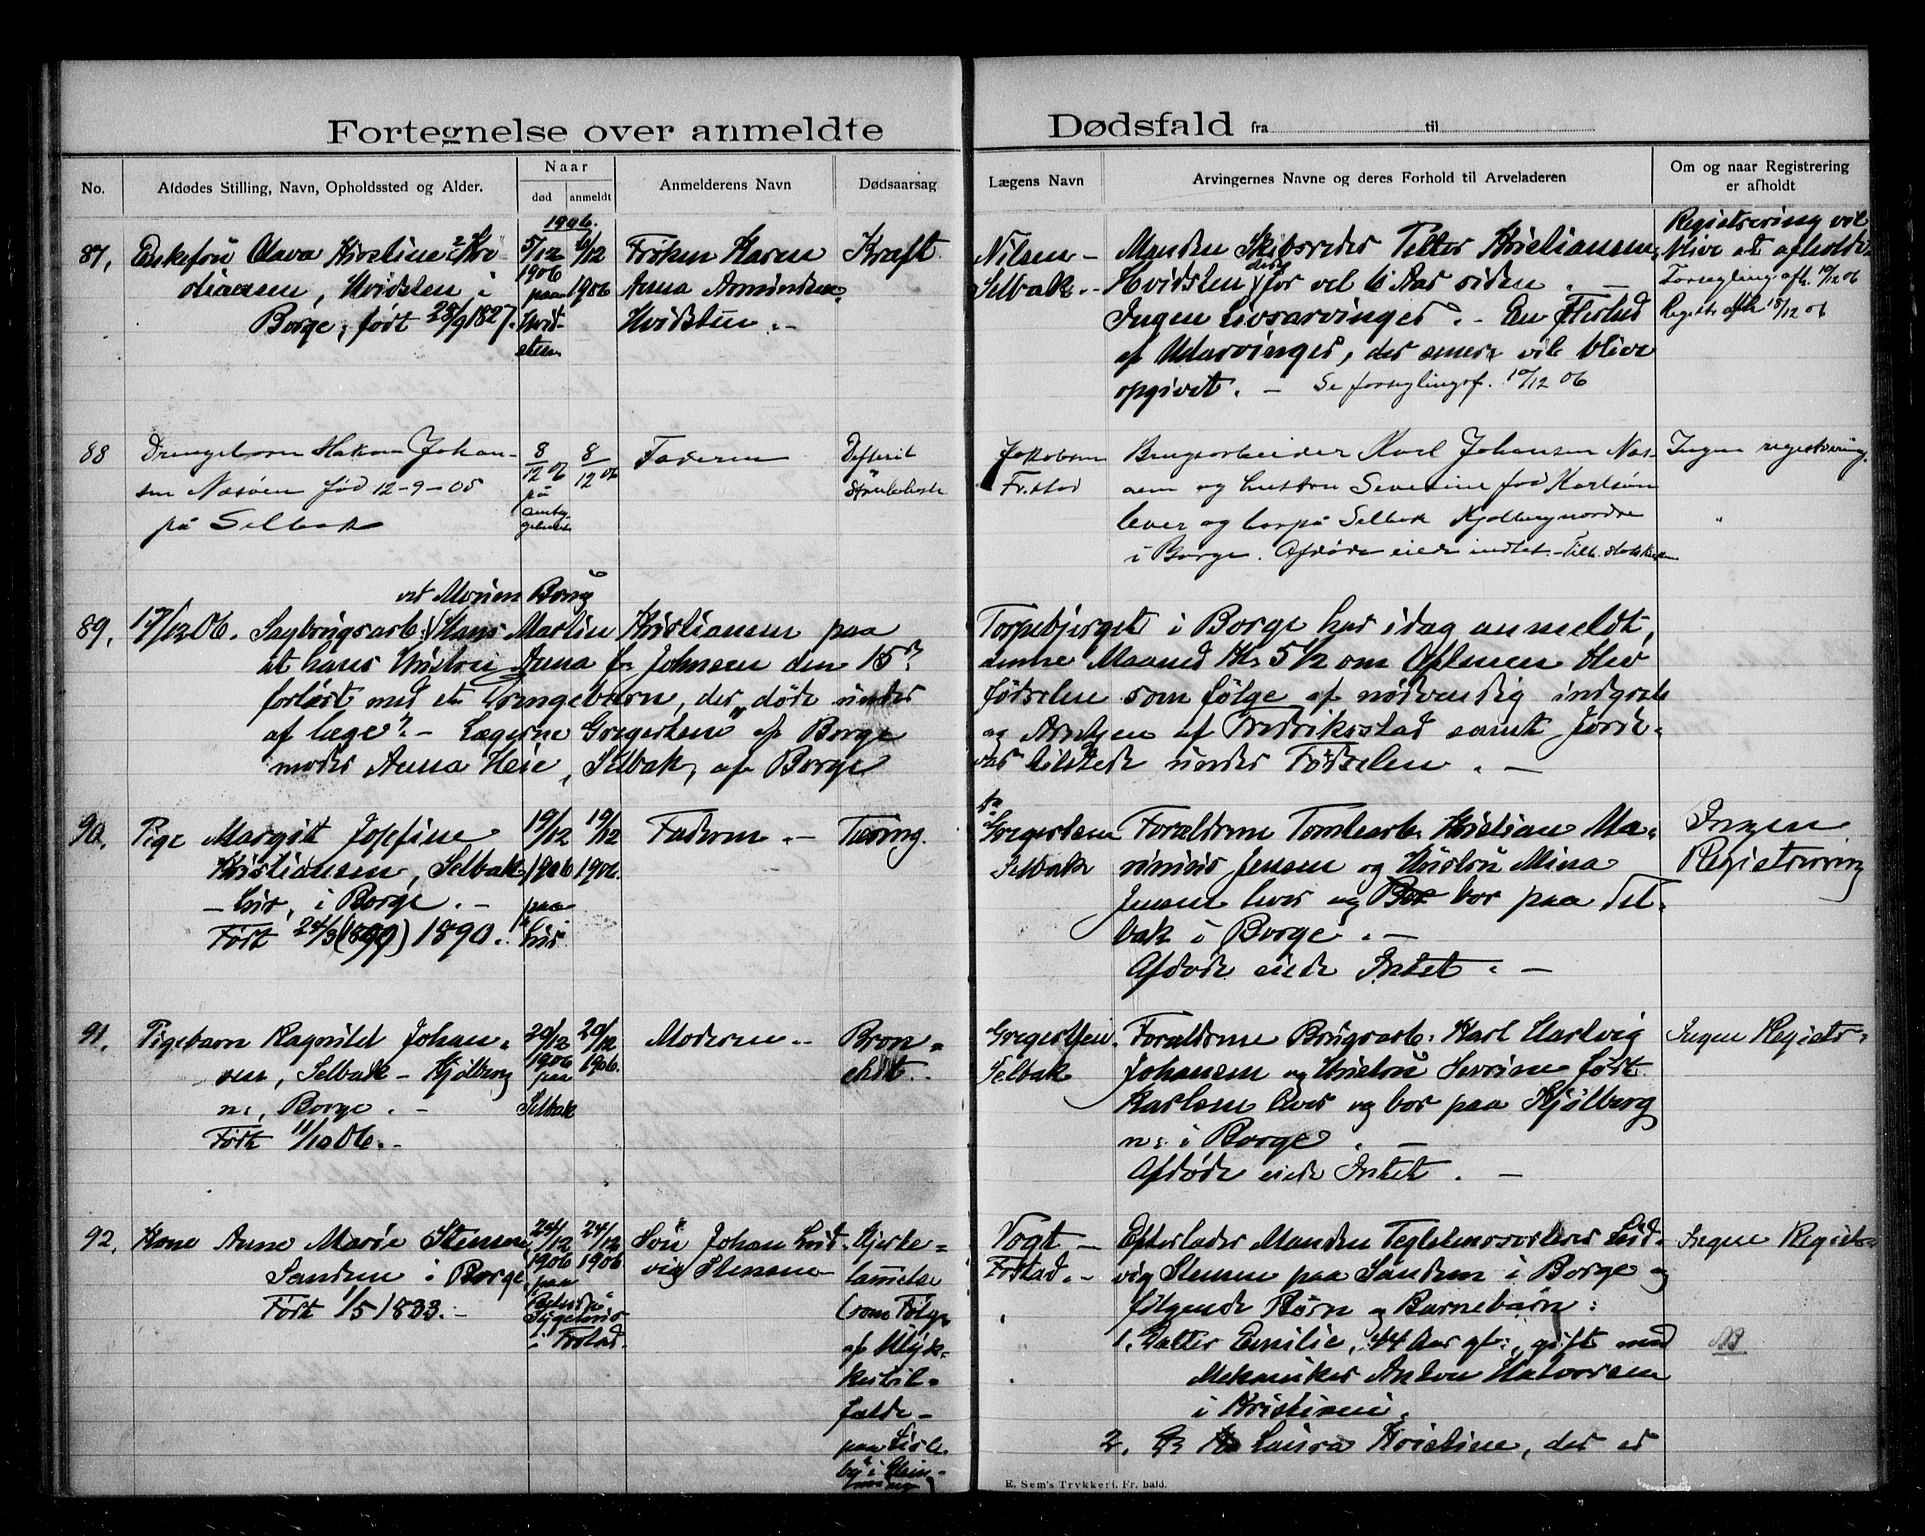 Fortegnelse over anmeldte Dødsfald fra til
No.
Afdødes Stilling, Navn, Opholdssted og Alder.
Naar
død
anmeldt
Anmelderens Navn
Dødsaarsag
Lægens Navn
Arvingernes Navne og deres Forhold til Arveladeren
Om og naar Registrering
er afholdt
1906.
87,
Enkefru Olava Kirstine Kri
stiansen, Hvidsten i
Borge, født 28/9 1827.
5/12
1906
paa
Hvid-
sten
10/12
1906
Frøken Karen
Anna Amundsen
Hvidsten.-
Kræft.
Nilsen -
Selbak.-
Manden Skibsreder Petter Kristiansen,
Hvidsten døde for vel 6 Aar siden. -
Ingen Livsarvinger. - En Flerhed
af Udarvinger, der senere vil blive
opgivet. - Se forseglingsf. 10/12 06
Registrering vil
blive afholdt.
Forsegling afh. 10/12 06
Registr. afh. 18/12 06
88
Drengebarn Hakon Johan-
sen Næsøen født 12-9-05
på Selbak
8
12 06
på
8
12 06
Faderen
Defterit
Strubehoste
Jakobsen
Fr.stad
Brugsarbeider Karl Johansen Næs-
øen og hustru Severine fød Karlsen
lever og bor på Selbak Kjølberg nordre
i Borge. Afdøde eiede intet.-
Ingen registrering.
ved Moum Borg
89,
17/12 06. Sagbrugsarb. Hans Martin Kristiansen paa
at hans Hustru Anna f. Johnsen den 15?
forløst med et Drengebarn, der "døde under
af læge". - Lægerne Gregertsen af Borge
moder Anna Heie, Selbak, af Borge
Torpebjerget i Borge har idag anmeldt,
denne Maaned Kl. 5 1/2 om Aftenen blev
fødselen som følge af nødvendig indgreb
og Arntzen af Fredriksstad samt Jorde-
var tilstede under Fødselen. -
90,
Pige Margit Josefine
Kristiansen, Selbak
- hus, i Borge. -
Født 24/3 (1899) 1890.
19/12
1906
paa
hus
19/12
1906.
Faderen -
Tæring.
Gregertsen
Selbak
Forældrene Tomtearb. Kristian Ma-
rinius Jensen og Hustru Mina
Jensen lever og bor paa Sel-
bak i Borge. -
Afdøde eiede Intet. -
Ingen
Registrering
91,
Pigebarn Ragnhild Johan-
sen, Selbak - Kjølberg
n:, Borge. -
Født 11/10 06.-
20/12
1906
paa
Selbak
20/12
1906.
Moderen -
Bron-
chit.-
Gregertsen.
Selbak
Forældrene Brugsarb. Karl Hartvig
Johansen og Hustru Sevrine født
Karlsen lever og bor paa Kjølberg
n: i Borge. -
Afdøde eiede Intet. -
Ingen Registr-
92,
Kone Anne Marie Stensen
Sanden i Borge.
Født 1/5 1833.-
24/12
1906
paa
Sygehus
i Frstad.
24/12
1906
Søn Johan Lud-
vig Stensen -
Hjerte-
lammelse
(som Følge
af Ulyk-
kestil-
fælde -
paa
Vogt -
Frstad.-
Efterlader Manden Lud-
vig Stensen paa Sanden i Borge og
følgende Børn og Barnebarn:
1. Datter Emilie, 44 Aar gl:, gift med
Mekaniker Anton Halvorsen
i Kristiania.
2. Laura Kristine, der er
Ingen Registr-
E. Sem's Trykkeri, Fr. hald.